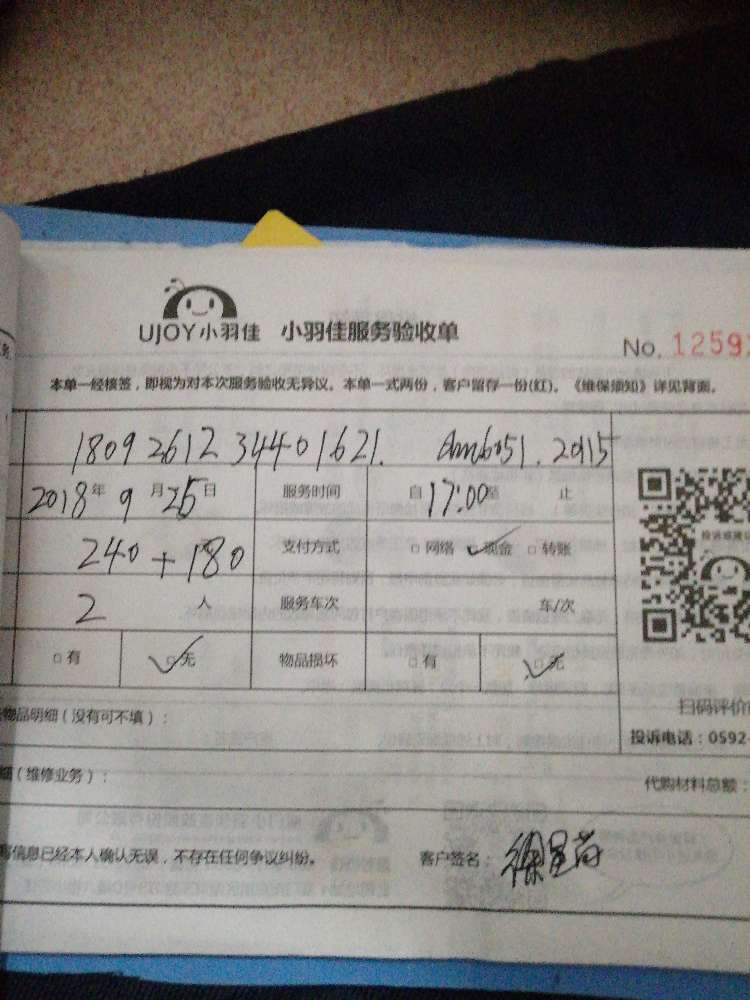 UJOY小羽佳 小羽佳服务验收单
No. 12592
本单一经核签，即视为对本次服务验收无异议。本单一式两份，客户留存一份(红)。《维保须知》详见背面。
1809261234401621.
2018年9月25日 服务时间 自17:00至 止
240+180 支付方式 □网络 ☑现金 □转账
2 人 服务车次 车/次
□有 ☑无 物品损坏 □有 ☑无
扫码评价
物品明细（没有可不填）：
投诉电话：0592-
（维修业务）： 代购材料总额：
信息已经本人确认无误，不存在任何争议纠纷。 客户签名：